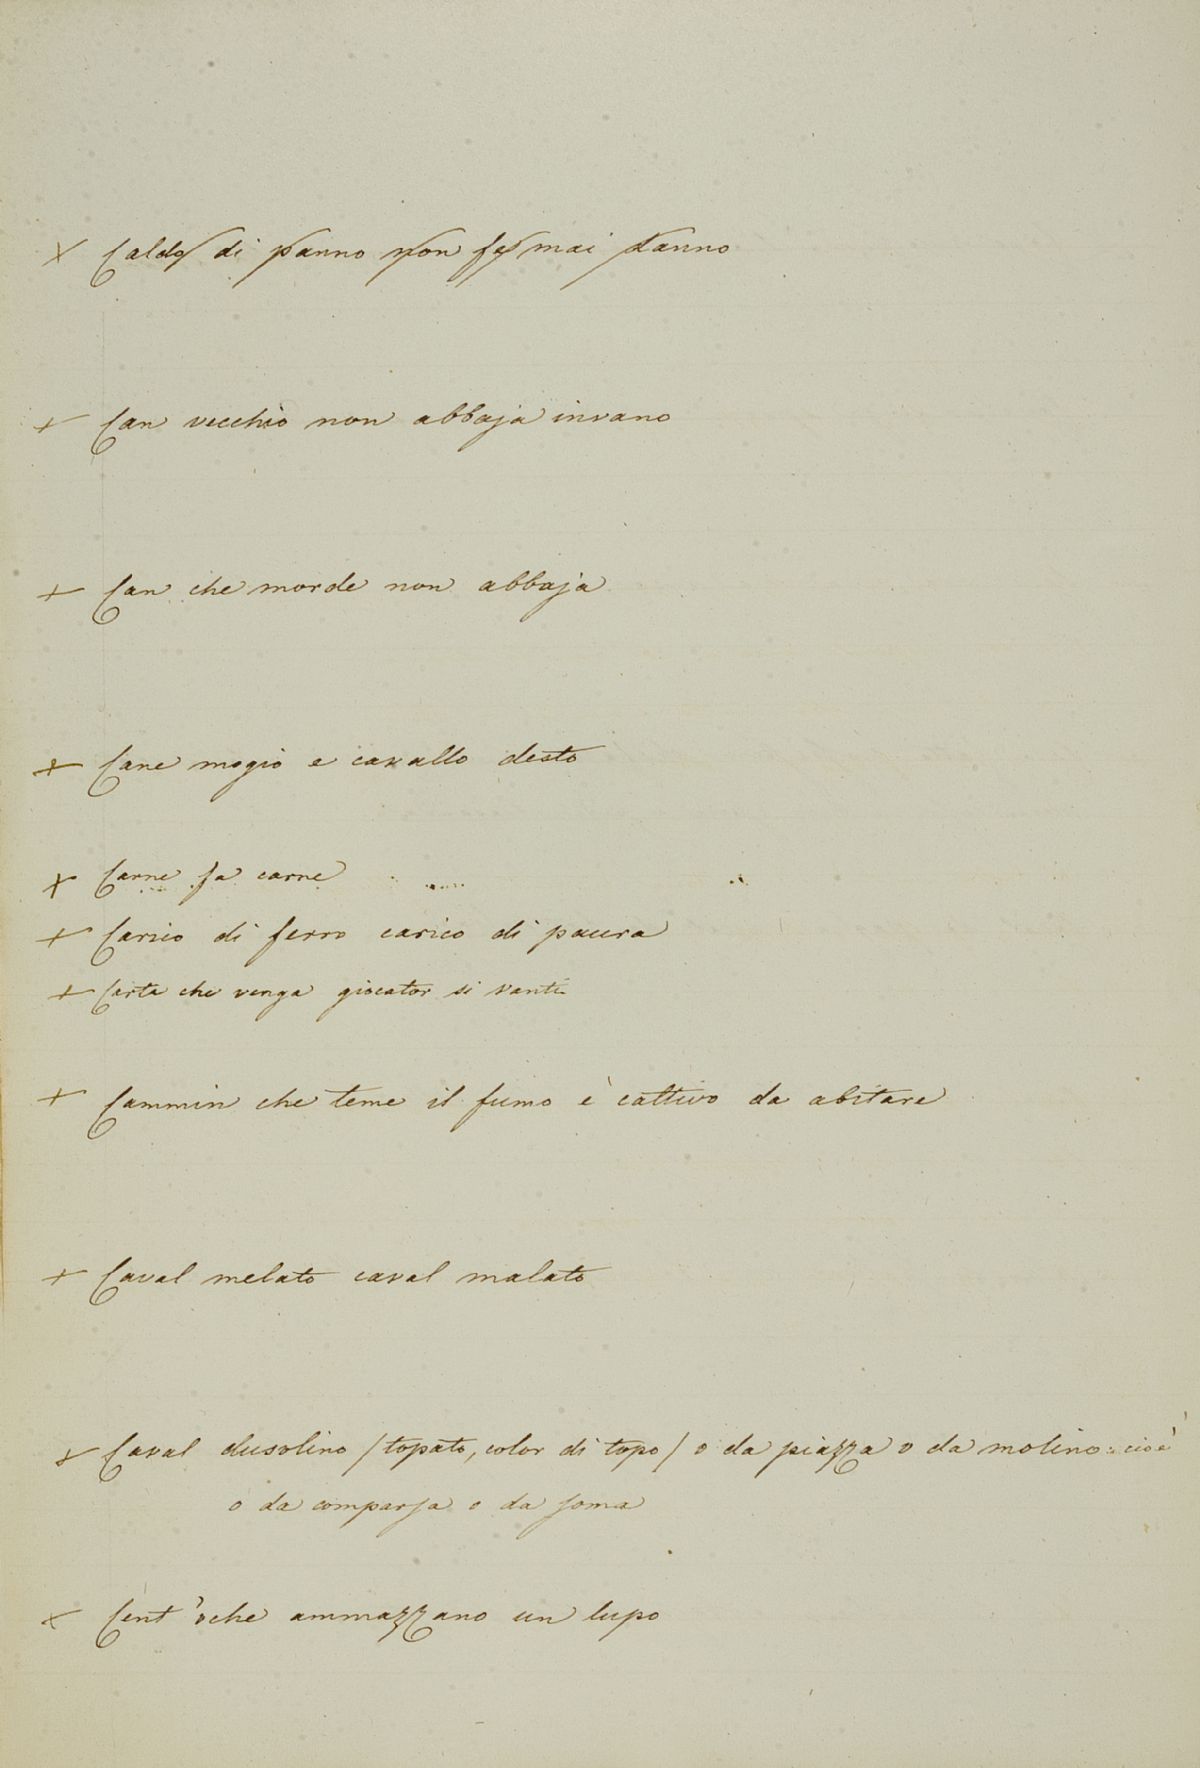 × Caldo di panno non fe' mai danno
+ Can vecchio non abbaja invano
+ Can che morde non abbaja
+ Cane mogio e cavallo desto
+ Carne fa carne
+ Carico di ferro carico di paura
+ Carta che venga giocator si vanti
+ Cammin che teme il fumo è cattivo da abitare
+ Caval melato caval malato
+ Caval dusolino / topato, color di topo / o da piazza o da molino: cioè
o da comparsa o da soma
× Cent' oche ammazzano un lupo